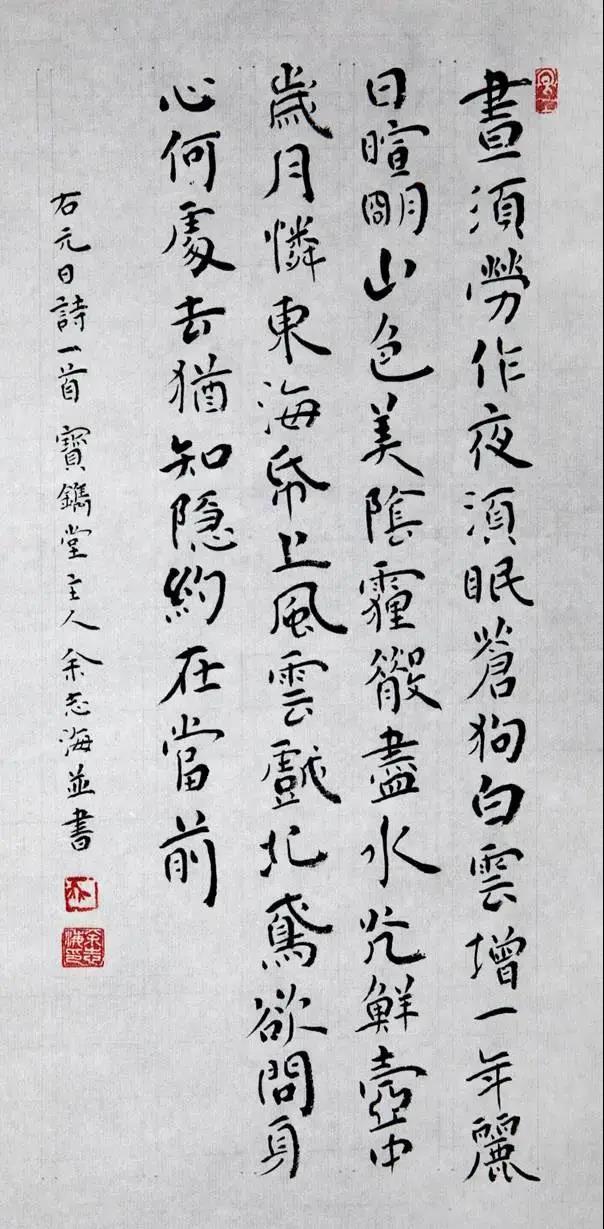 晝須勞作夜須眠蒼狗白雲增一年麗
日暄朙山色美陰霾散盡水光鮮壺中
歲月憐東海帋上風雲戲北鳶欲問身
心何處去猶知隱約在當前
右元日詩一首 寶鐫堂主人余志海並書
余志海印